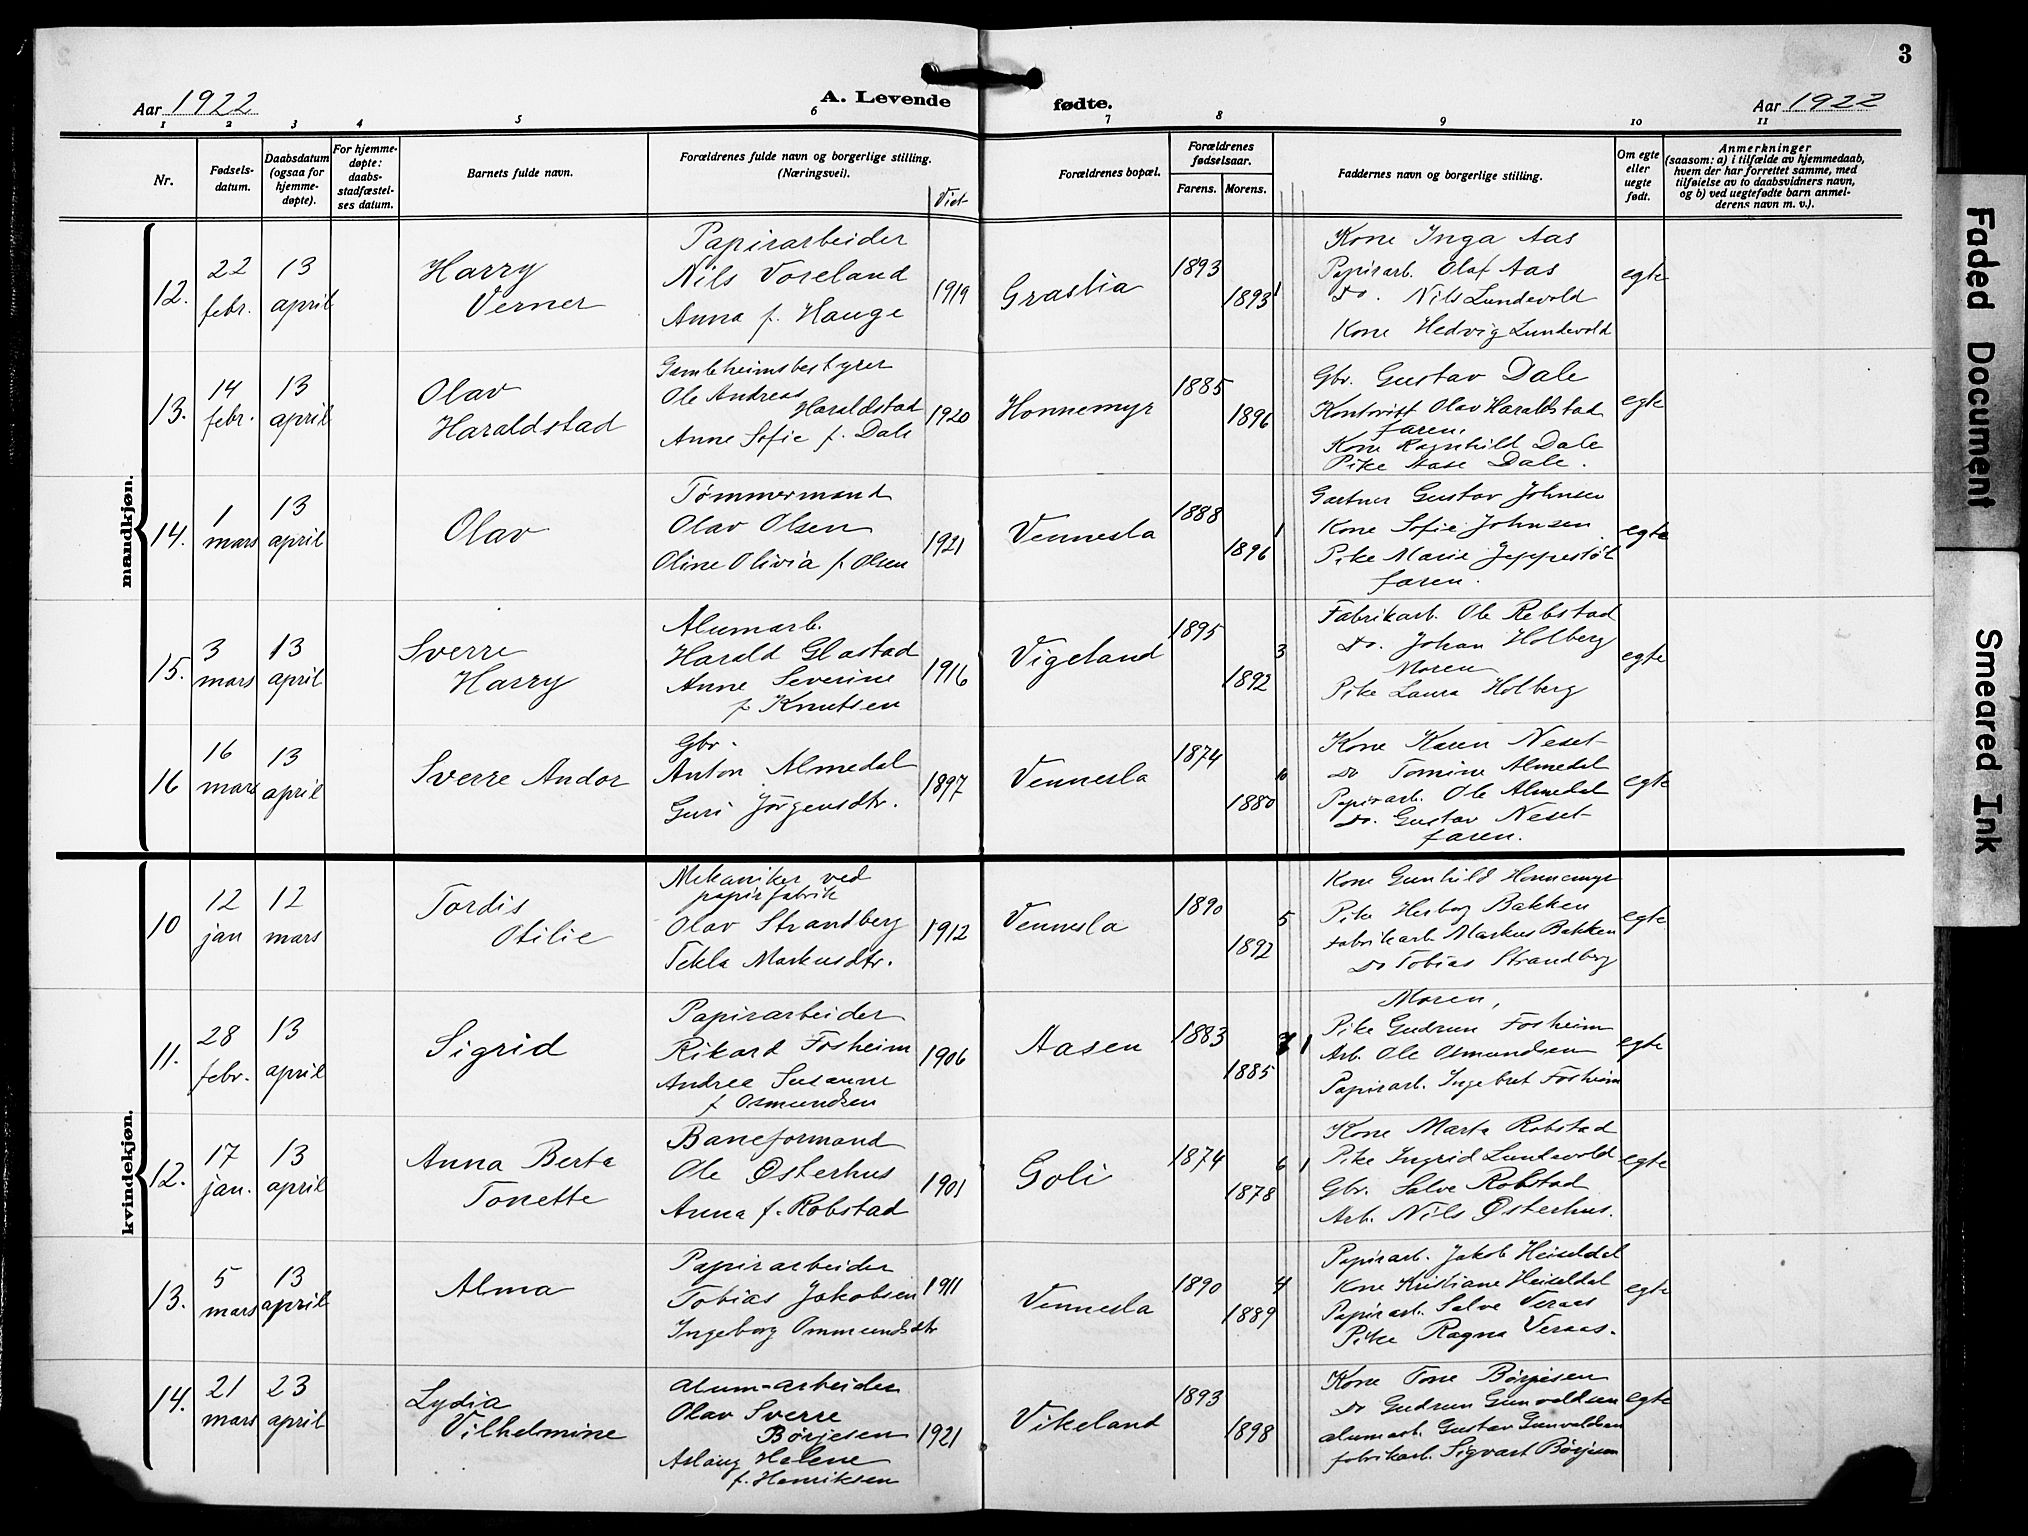 3
Aar 1922
A. Levende fødte.
Aar 1922
1 2 3 4 5 6 7 8 9 10 11
Nr.
Fødsels-
datum.
Daabsdatum
(ogsaa for
hjemme-
døpte).
For hjemme-
døpte:
daabs-
stadfæstel-
ses datum.
Barnets fulde navn.
Forældrenes fulde navn og borgerlige stilling.
(Næringsvei).
Viet
Forældrenes bopæl.
Forældrenes
fødselsaar.
Farens. Morens.
Faddernes navn og borgerlige stilling.
Om egte
eller
uegte
født.
Anmerkninger
(saasom: a) i tilfælde av hjemmedaab,
hvem der har forrettet samme, med
tilføielse av to daabsvidners navn,
og b) ved uegtefødte barn anmel-
derens navn m. v.).
mandkjøn.
12.
22
febr.
13
april
Harry
Verner
Papirarbeider
Nils Voreland
Anna f. Hauge
1919
Graslia
1893
1893
1
Kone Inga Aas
Papirarb. Olaf Aas
Do. Nils Lundevold
Kone Hedvig Lundevold
egte
13.
14
febr.
13
april
Olav
Haraldstad
Gamleheimsbestyrer
Ole Andreas
Haraldstad
Anne Sofie f. Dale
1920
Honnemyr
1885
1896
Gbr. Gustav Dale
Kontorist Olav Haraldstad
faren.
Kone Ragnhild Dale
Pike Aase Dale.
egte
14.
1
mars
13
april
Olav
Tømmermand
Olav Olsen
Oline Olivia f. Olsen
1921
Vennesla
1888
1896
1
Gartner Gustav Johnsen
Kone Sofie Johnsen
Pike Marie Jeppestøl
faren.
egte
15.
3
mars
13
april
Sverre
Harry
Alumarb.
Harald Glastad
Anne Severine
f. Knutsen
1916
Vigeland
1895
1892
3
Fabrikarb. Ole Rebstad
Do. Johan Holberg
Moren
Pike Laura Holberg
egte
16
16
mars
13
april
Sverre Andor
Gbr.
Anton Almedal
Guri Jørgensdtr.
1897
Vennesla
1874
1880
10
Kone Karen Neset
Do Tomine Almedal
Papirarb. Ole Almedal
Do. Gustav Neset
faren.
egte
kvindekjøn.
10
12
jan
12
mars
Tordis
Otilie
Mekaniker ved
papirfabrik
Olav Strandberg
Tekla Markusdtr.
1912
Vennesla
1890
1892
5
Kone Gunhild Honnemyr
Pike Herborg Bakken
Fabrikarb. Markus Bakken
Do Tobias Strandberg
egte
11.
28
febr.
13
april
Sigrid
Papirarbeider
Rikard Fosheim
Andrea Susanne
f. Osmundsen
1906
Aasen
1883
1885
1
Moren,
Pike Gudrun Fosheim
Arb. Ole Osmundsen
Papirarb. Ingebret Fosheim
egte
12.
17
jan.
13
april
Anna Berte
Tonette
Baneformand
Ole Østerhus
Anna f. Robstad
1901
Goli
1874
1878
6 1
Kone Marta Robstad
Pike Ingrid Lundevold
Gbr. Salve Robstad
Arb. Nils Østerhus.
egte
13.
5
mars
13
april
Alma
Papirarbeider
Tobias Jakobsen
Ingeborg Ommundsdtr
1911
Vennesla
1890
1889
4
Papirarb. Jakob Heiseldal
Kone Kristiane Heiseldal
Papirarb. Salve Veraas
Pike Ragna Veraas.
egte
14.
21
mars
23
april
Lydia
Vilhelmine
Alum-arbeider
Olav Sverre
Børjesen
Aslaug Helene
f. Henriksen
1921
Vikeland
1893
1898
Kone Tone Børjesen
Do Gudrun Gunvaldsen
alumarb. Gustav Gunvaldsen
fabrikarb. Sigvart Børjesen
egte
Faded Document
Smeared Ink